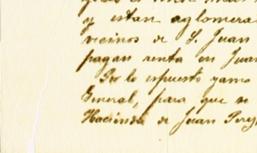 y estan aglomera
vecinos de S. Juan
pagan renta en Juan
Por lo espuesto yamo
General, para que se
Hacienda de Juan Perez